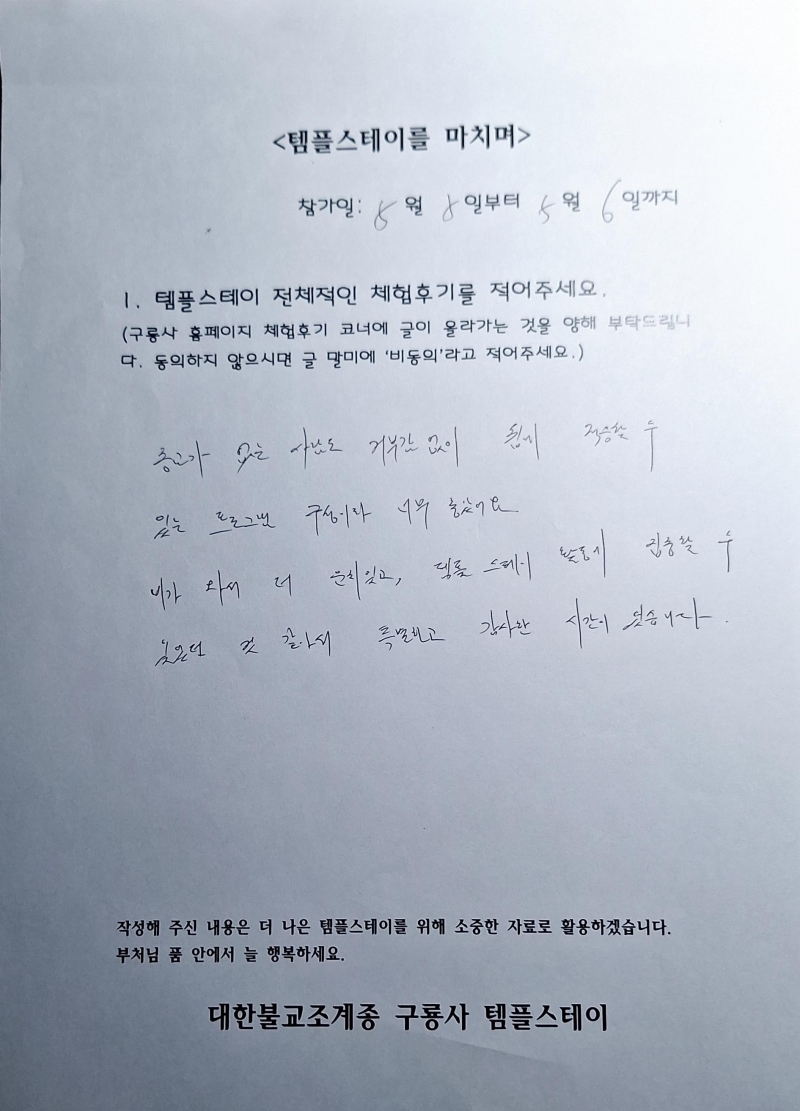 <템플스테이를 마치며>
참가일: 5월 일부터 5월 6일까지
1. 템플스테이 전체적인 체험후기를 적어주세요.
(구룡사 홈페이지 체험후기 코너에 글이 올라가는 것을 양해 부탁드립니
다. 동의하지 않으시면 글 말미에 '비동의'라고 적어주세요.)
종교가 없는 사람도 거부감 없이 쉽게 적응할 수
있는 프로그램 구성이라 너무 좋았어요
비가 와서 더 운치있고, 템플 스테이 활동에 집중할 수
있었던 것 같아서 특별하고 감사한 시간이었습니다.
작성해 주신 내용은 더 나은 템플스테이를 위해 소중한 자료로 활용하겠습니다.
부처님 품 안에서 늘 행복하세요.
대한불교조계종 구룡사 템플스테이